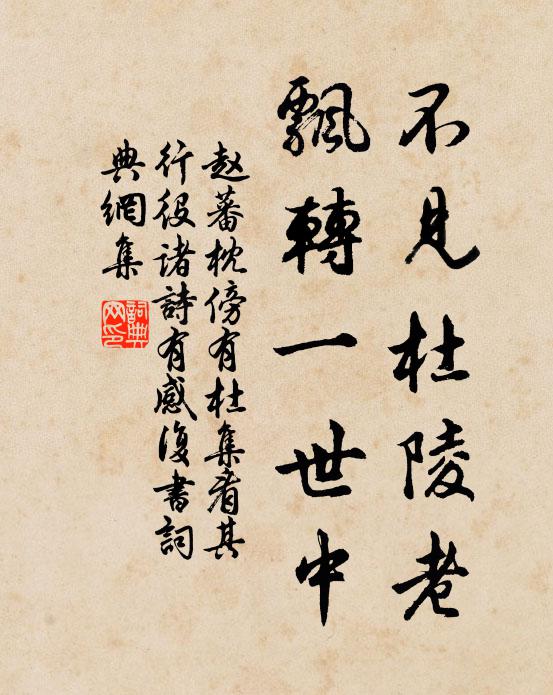 不见杜陵老
飘轉一世中
赵蕃枕傍有杜集看其
行役诸詩有感復書詞
典網集
詞典网印